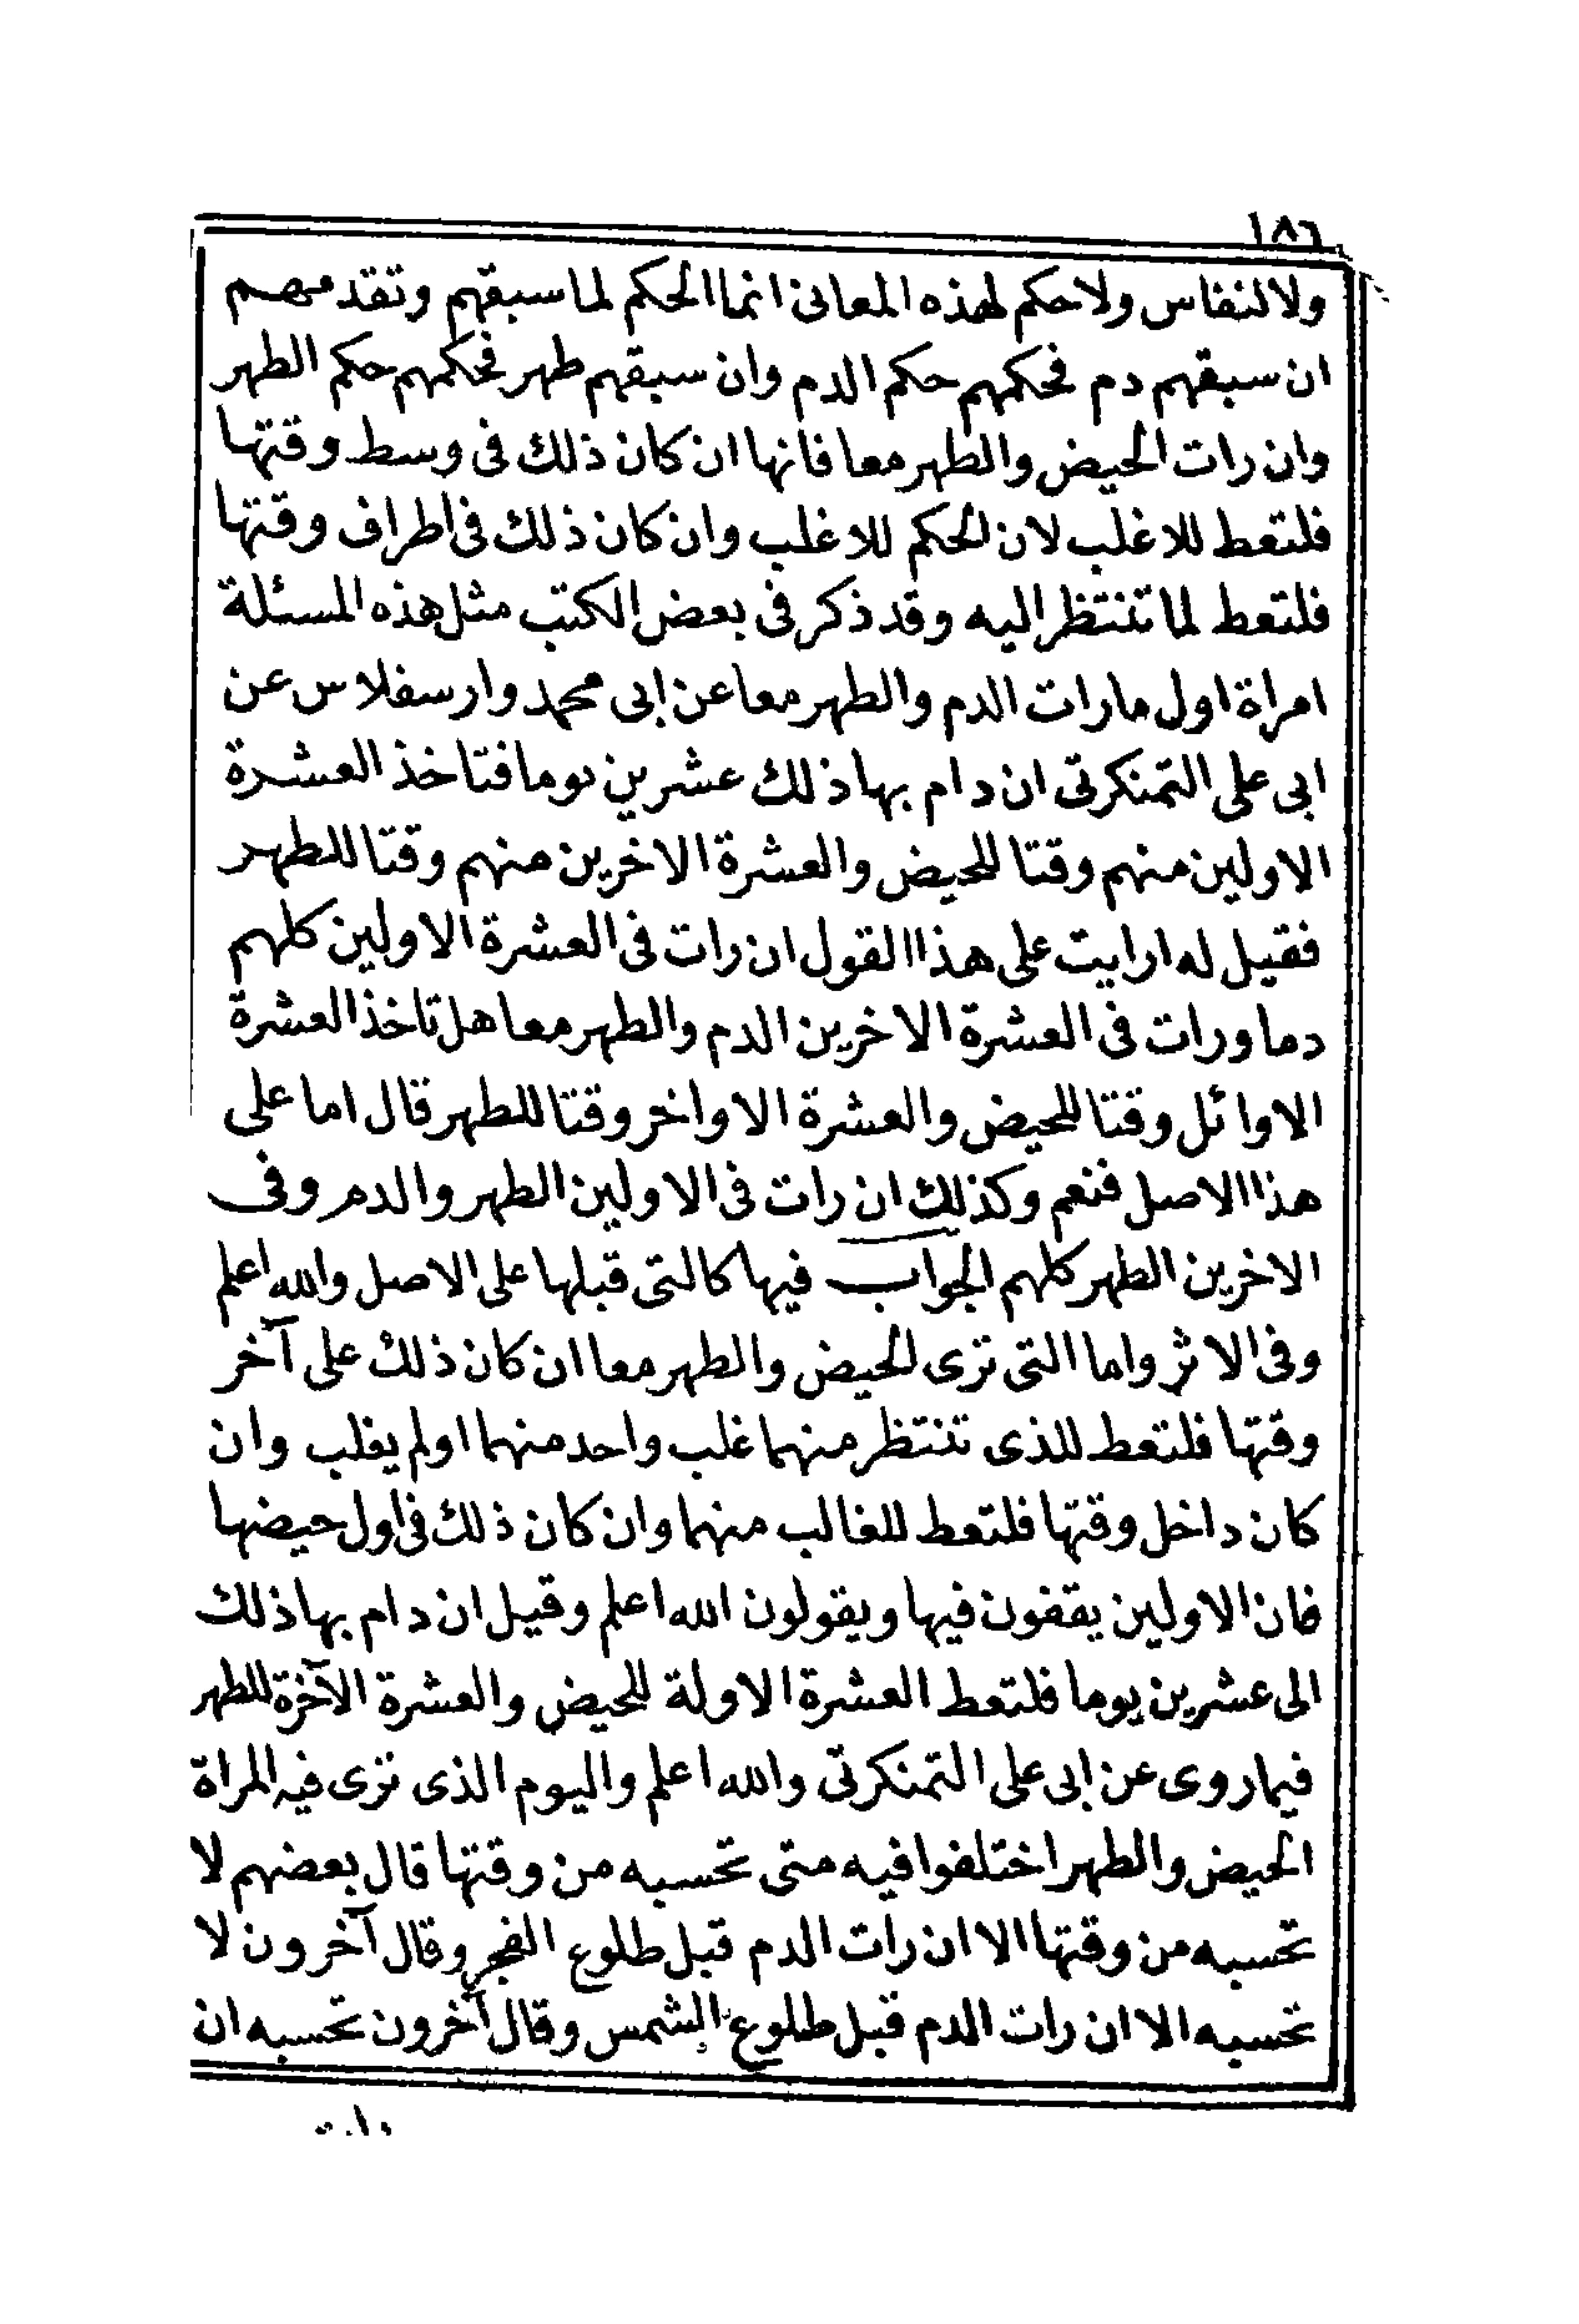 ١٨٦
ولا لنفاس ولا حكم لهذه المعانى انما الحكم لما سبقهم وتقدمهم
ان سبقهم دم فحكمهم حكم الدم وان سبقهم طهر فحكمهم حكم الطهر
وان رات الحيض والطهر معا فانها ان كان ذلك فى وسط وقتها
فلتعط للاغلب لان الحكم للاغلب وان كان ذلك فى اطراف وقتها
فلتعط لما تنتظر اليه وقد ذكر فى بعض الكتب مثل هذه المسئلة
امراة اول ما رات الدم والطهر معا عن ابى محمد وارسفلاس عن
ابى على التمنكرتى ان دام بها ذلك عشرين يوما فتاخذ العشرة
الاولين منهم وقتا للحيض والعشرة الاخرين منهم وقتا للطهر
فقيل له ارايت على هذا القول ان رات فى العشرة الاولين كلهم
دما ورات فى العشرة الاخرين الدم والطهر معا هل تاخذ العشرة
الاوائل وقتا للحيض والعشرة الاواخر وقتا للطهر قال اما على
هذا الاصل فنعم وكذلك ان رات فى الاولين الطهر والدم وفى
الاخرين الطهر كلهم الجواب فيها كالتى قبلها على الاصل والله اعلم
وفى الاثر واما التى ترى الحيض والطهر معا ان كان ذلك على آخر
وقتها فلتعط للذى تنتظر منهما غلب واحد منهما او لم يغلب وان
كان داخل وقتها فلتعط للغالب منهما وان كان ذلك فى اول حيضها
فان الاولين يقفون فيها ويقولون الله اعلم وقيل ان دام بها ذلك
الى عشرين يوما فلتعط العشرة الاولة للحيض والعشرة الآخرة للطهر
فيما روى عن ابى على التمنكرتى والله اعلم واليوم الذى ترى فيه المراة
الحيض والطهر اختلفوا فيه متى تحسبه من وقتها قال بعضهم لا
تحسبه من وقتها الا ان رات الدم قبل طلوع الفجر وقال آخرون لا
تحسبه الا ان رات الدم قبل طلوع الشمس وقال آخرون تحسبه ان